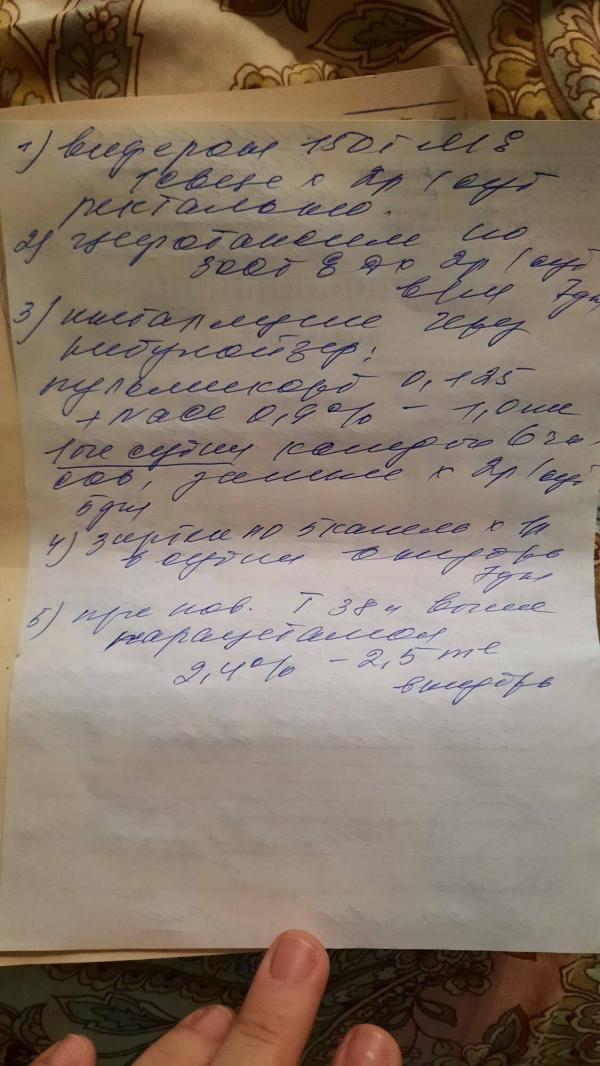 1) виферон 150т МЕ
1 свече х 2р/сут
ректально.
2) цефотаксим по
300т ЕД х 2р/сут
в/м 7дн
3) ингаляции через
небулайзер:
пульмикорт 0,125
+ NaCl 0,9% - 1,0 мл
1ые сутки каждые 6 ча
сов, затем х 2р/сут
5дн
4) зиртек по 5 капель х 1р
в сутки внутрь
7дн
5) при пов. Т 38 и выше
парацетамол
2,4% - 2,5 ml
внутрь